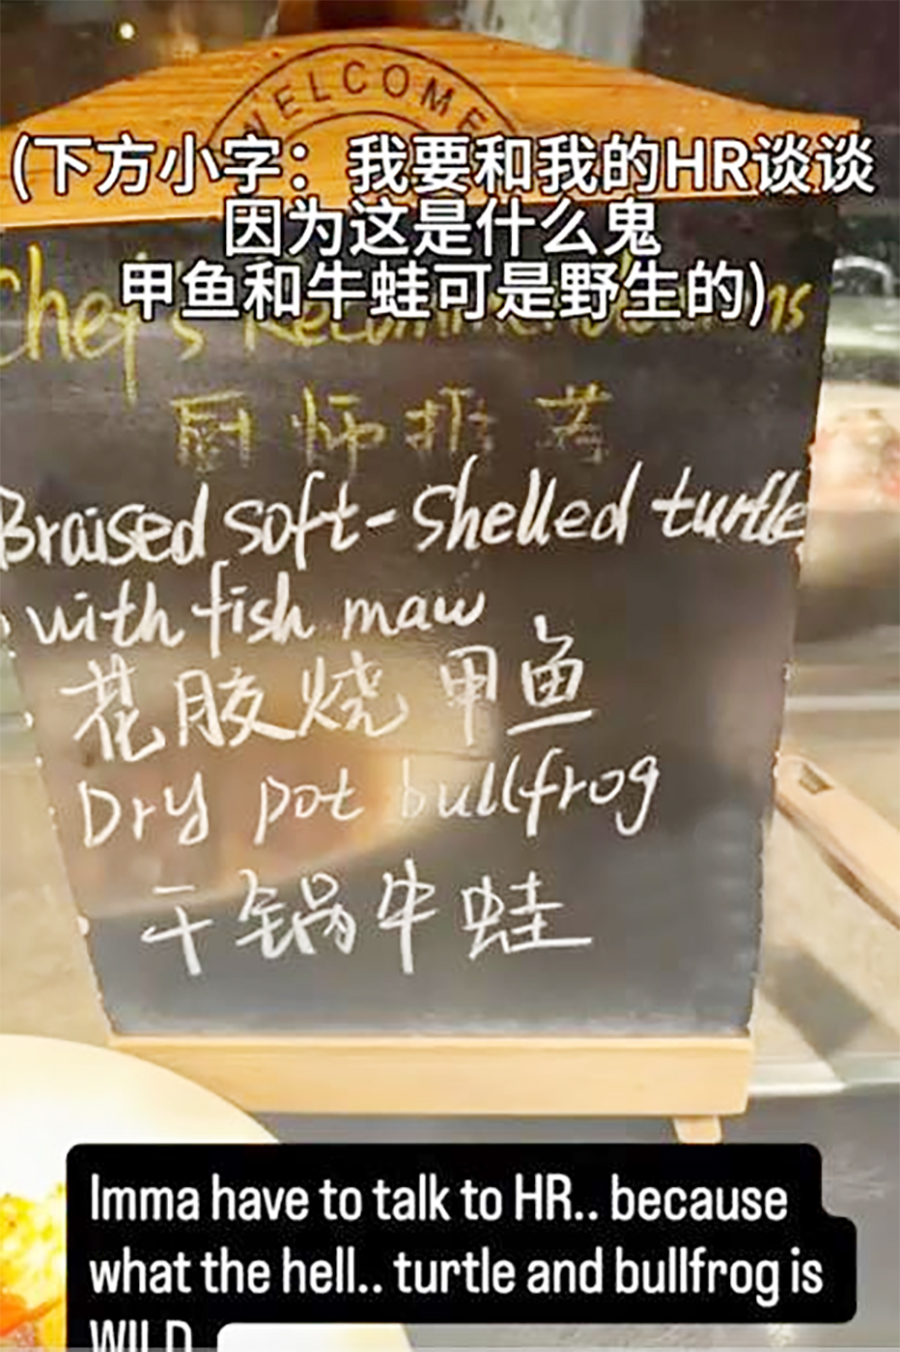 WELCOME
(下方小字：我要和我的HR谈谈
因为这是什么鬼
甲鱼和牛蛙可是野生的)
Chef's Recommendations
厨师推荐
Braised soft-shelled turtle
with fish maw
花胶烧甲鱼
Dry pot bullfrog
干锅牛蛙
Imma have to talk to HR.. because
what the hell.. turtle and bullfrog is
WILD